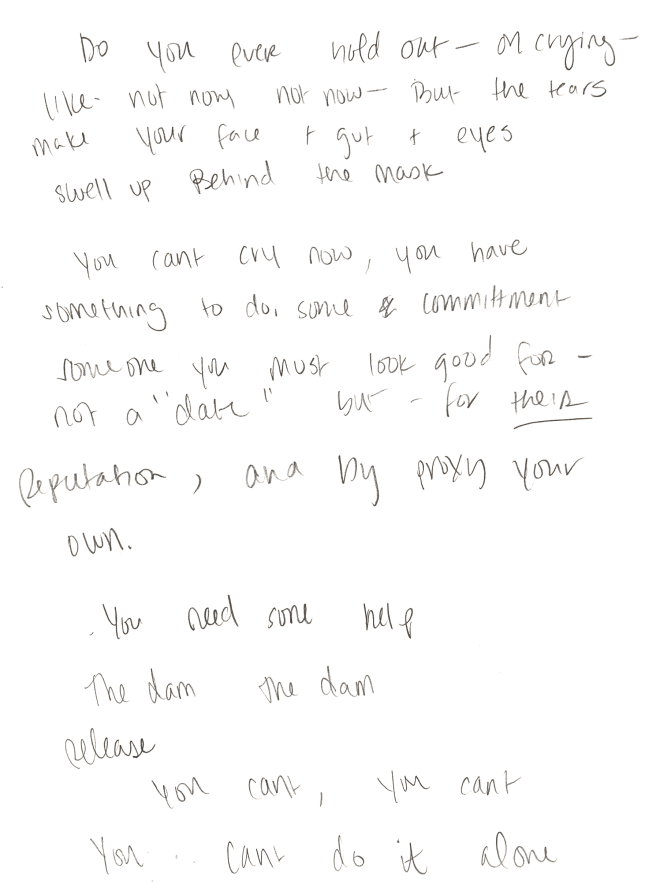 Do you ever hold out — on crying —
like - not now, not now — But the tears
make your face + gut + eyes
swell up Behind the mask
You cant cry now, you have
something to do, some committment
someone you must look good for —
not a "date" but - for their
Reputation, and by proxy your
own.
. You need some help
The dam the dam
release
You cant, You cant
You .. cant do it alone